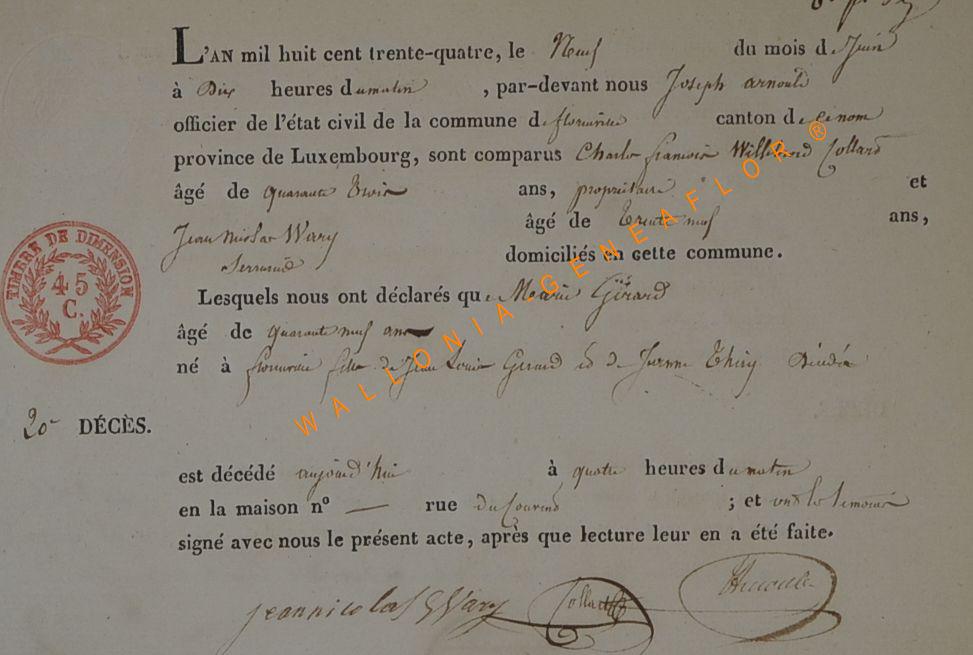 L'AN mil huit cent trente-quatre, le Neuf du mois de Juin
à Dix heures du matin, par-devant nous Joseph arnould
officier de l'état civil de la commune de florenville canton de
province de Luxembourg, sont comparus Charles francois Willibrord Collard
âgé de quarante trois ans, propriétaire et
Jean Nicolas Wary âgé de trente neuf ans,
Serrurier domiciliés en cette commune.
Lesquels nous ont déclarés que Marie Gérard
âgé de quarante neuf ans
né à florenville fille de Jean Louis Gerard et de Jeanne Thiry
20e DÉCÈS.
est décédé aujourd'hui à quatre heures du matin
en la maison nº — rue du ; et ont les temoins
signé avec nous le présent acte, après que lecture leur en a été faite.
jeannicolas Wary Collard
TIMBRE DE DIMENSION
45
C.
WALLONIA-GENEAFLOR ®